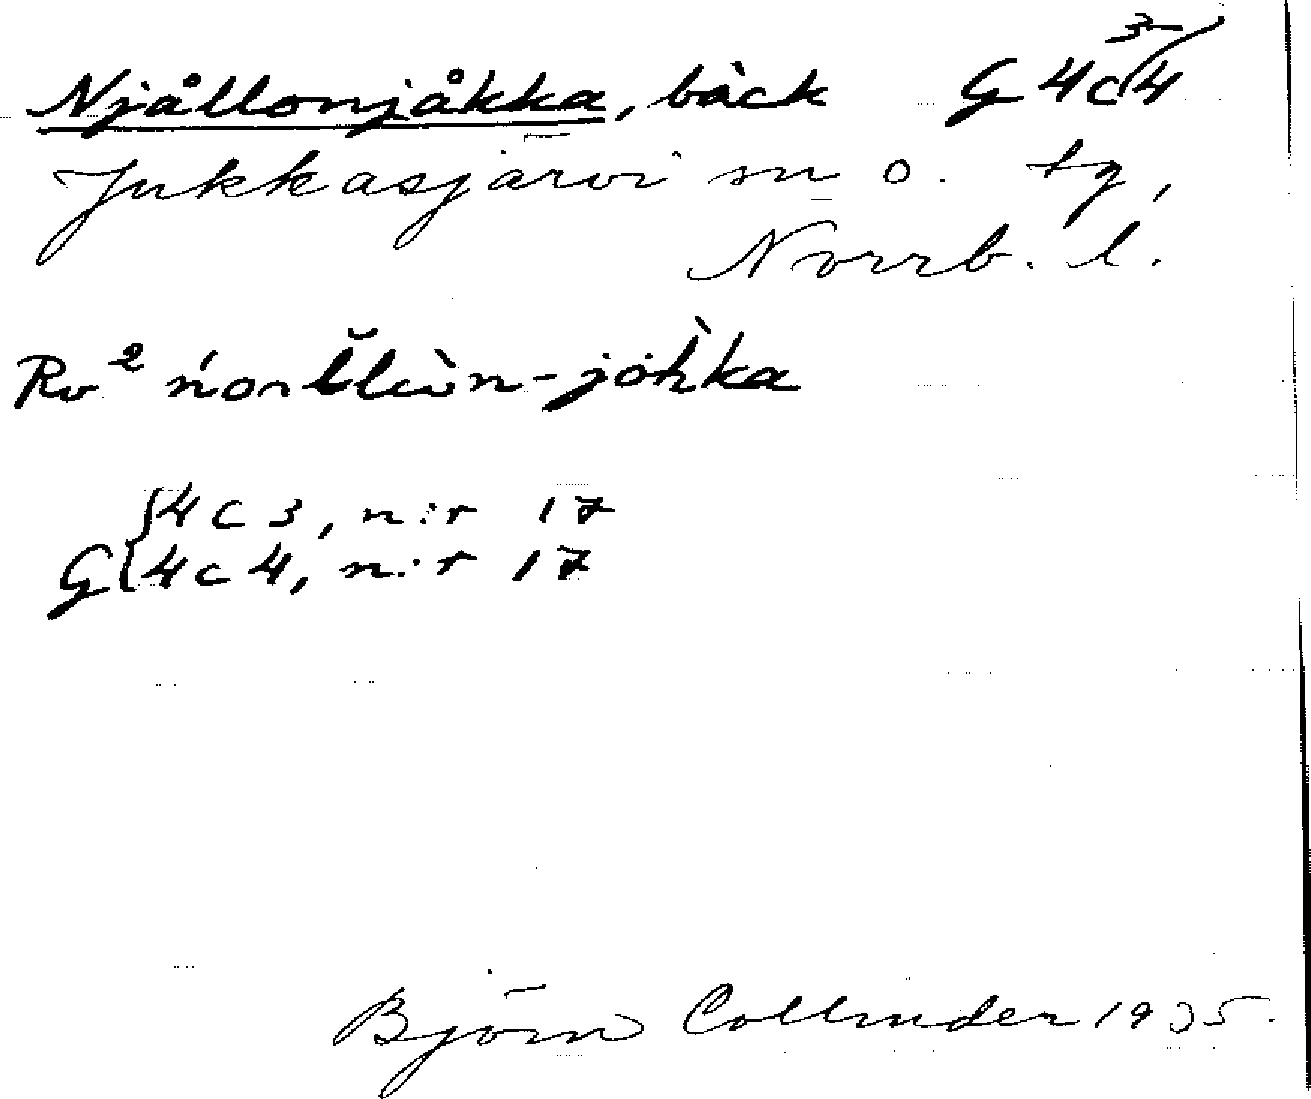 Njållonjåkka, bäck G 4c 3/4
Jukkasjärvi sn o. tg,
Norrb. l.
Rv²
G { 4 c 3, n:r 17
4 c 4, n:r 17
Björn Collinder 1935.